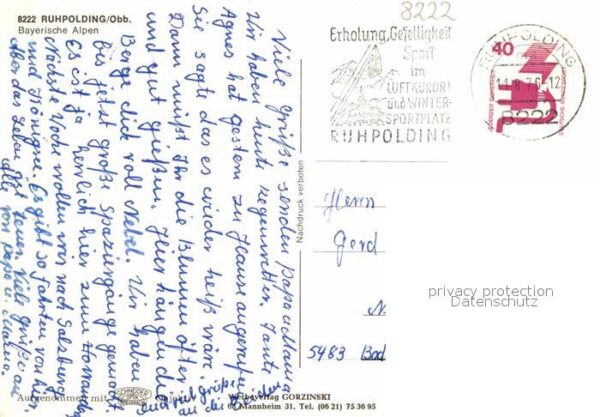 8222 RUHPOLDING/Obb.
Bayerische Alpen
Viele Grüße senden Papa u. Mama
Wir haben heute regenwetter. Tante
Agnes hat gestern zu Hause angerufen
Sie sagte das es wieder heiß wäre.
Dann müßt Ihr die Blumen öfter
und gut gießen. Hier hängen die
Berge dick voll Nebel. Wir haben
bis jetzt große Spaziergänge gemacht.
Es ist ja herrlich hier zum
Nächste Woche wollen wir nach Salzburg
und Königsee. Es gibt so Fahrten von hier
aber das Leben ist teuer. Viele Grüße an
alle von Papa u. Mama.
und viel Grüße
an die Beiden
8222
Erholung, Geselligkeit
Sport
im
LUFTKURORT
und WINTER-
SPORTPLATZ
RUHPOLDING
40
RUHPOLDING
8222
DEUTSCHE BUNDESPOST
Nachdruck verboten
Herrn
Gerd
N.
5483 Bad
privacy protection
Datenschutz
Aufgenommen mit
Werbeverlag GORZINSKI
Mannheim 31, Tel. (06 21) 75 36 95